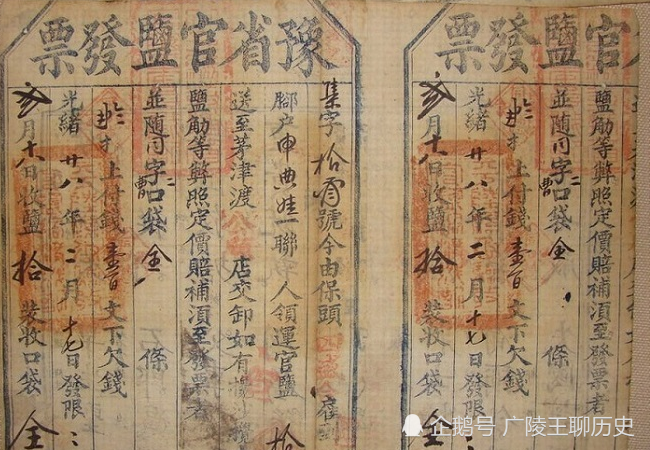 豫省官鹽發票
字拾號今由保頭
腳户申典娃一聯人領運官鹽拾
送至茅津渡店交卸如有
鹽觔等獘照定價賠補須至發票者
並随字口袋全條
上付錢壹百文下欠錢
光緒廿八年二月十七日發限二
月十八日收鹽拾裝收口袋全
官鹽發票
鹽觔等獘照定價賠補須至發票者
並随字口袋全條
上付錢壹百文下欠錢
光緒廿八年二月十七日發限二
月十八日收鹽拾裝收口袋全
企鹅号 广陵王聊历史